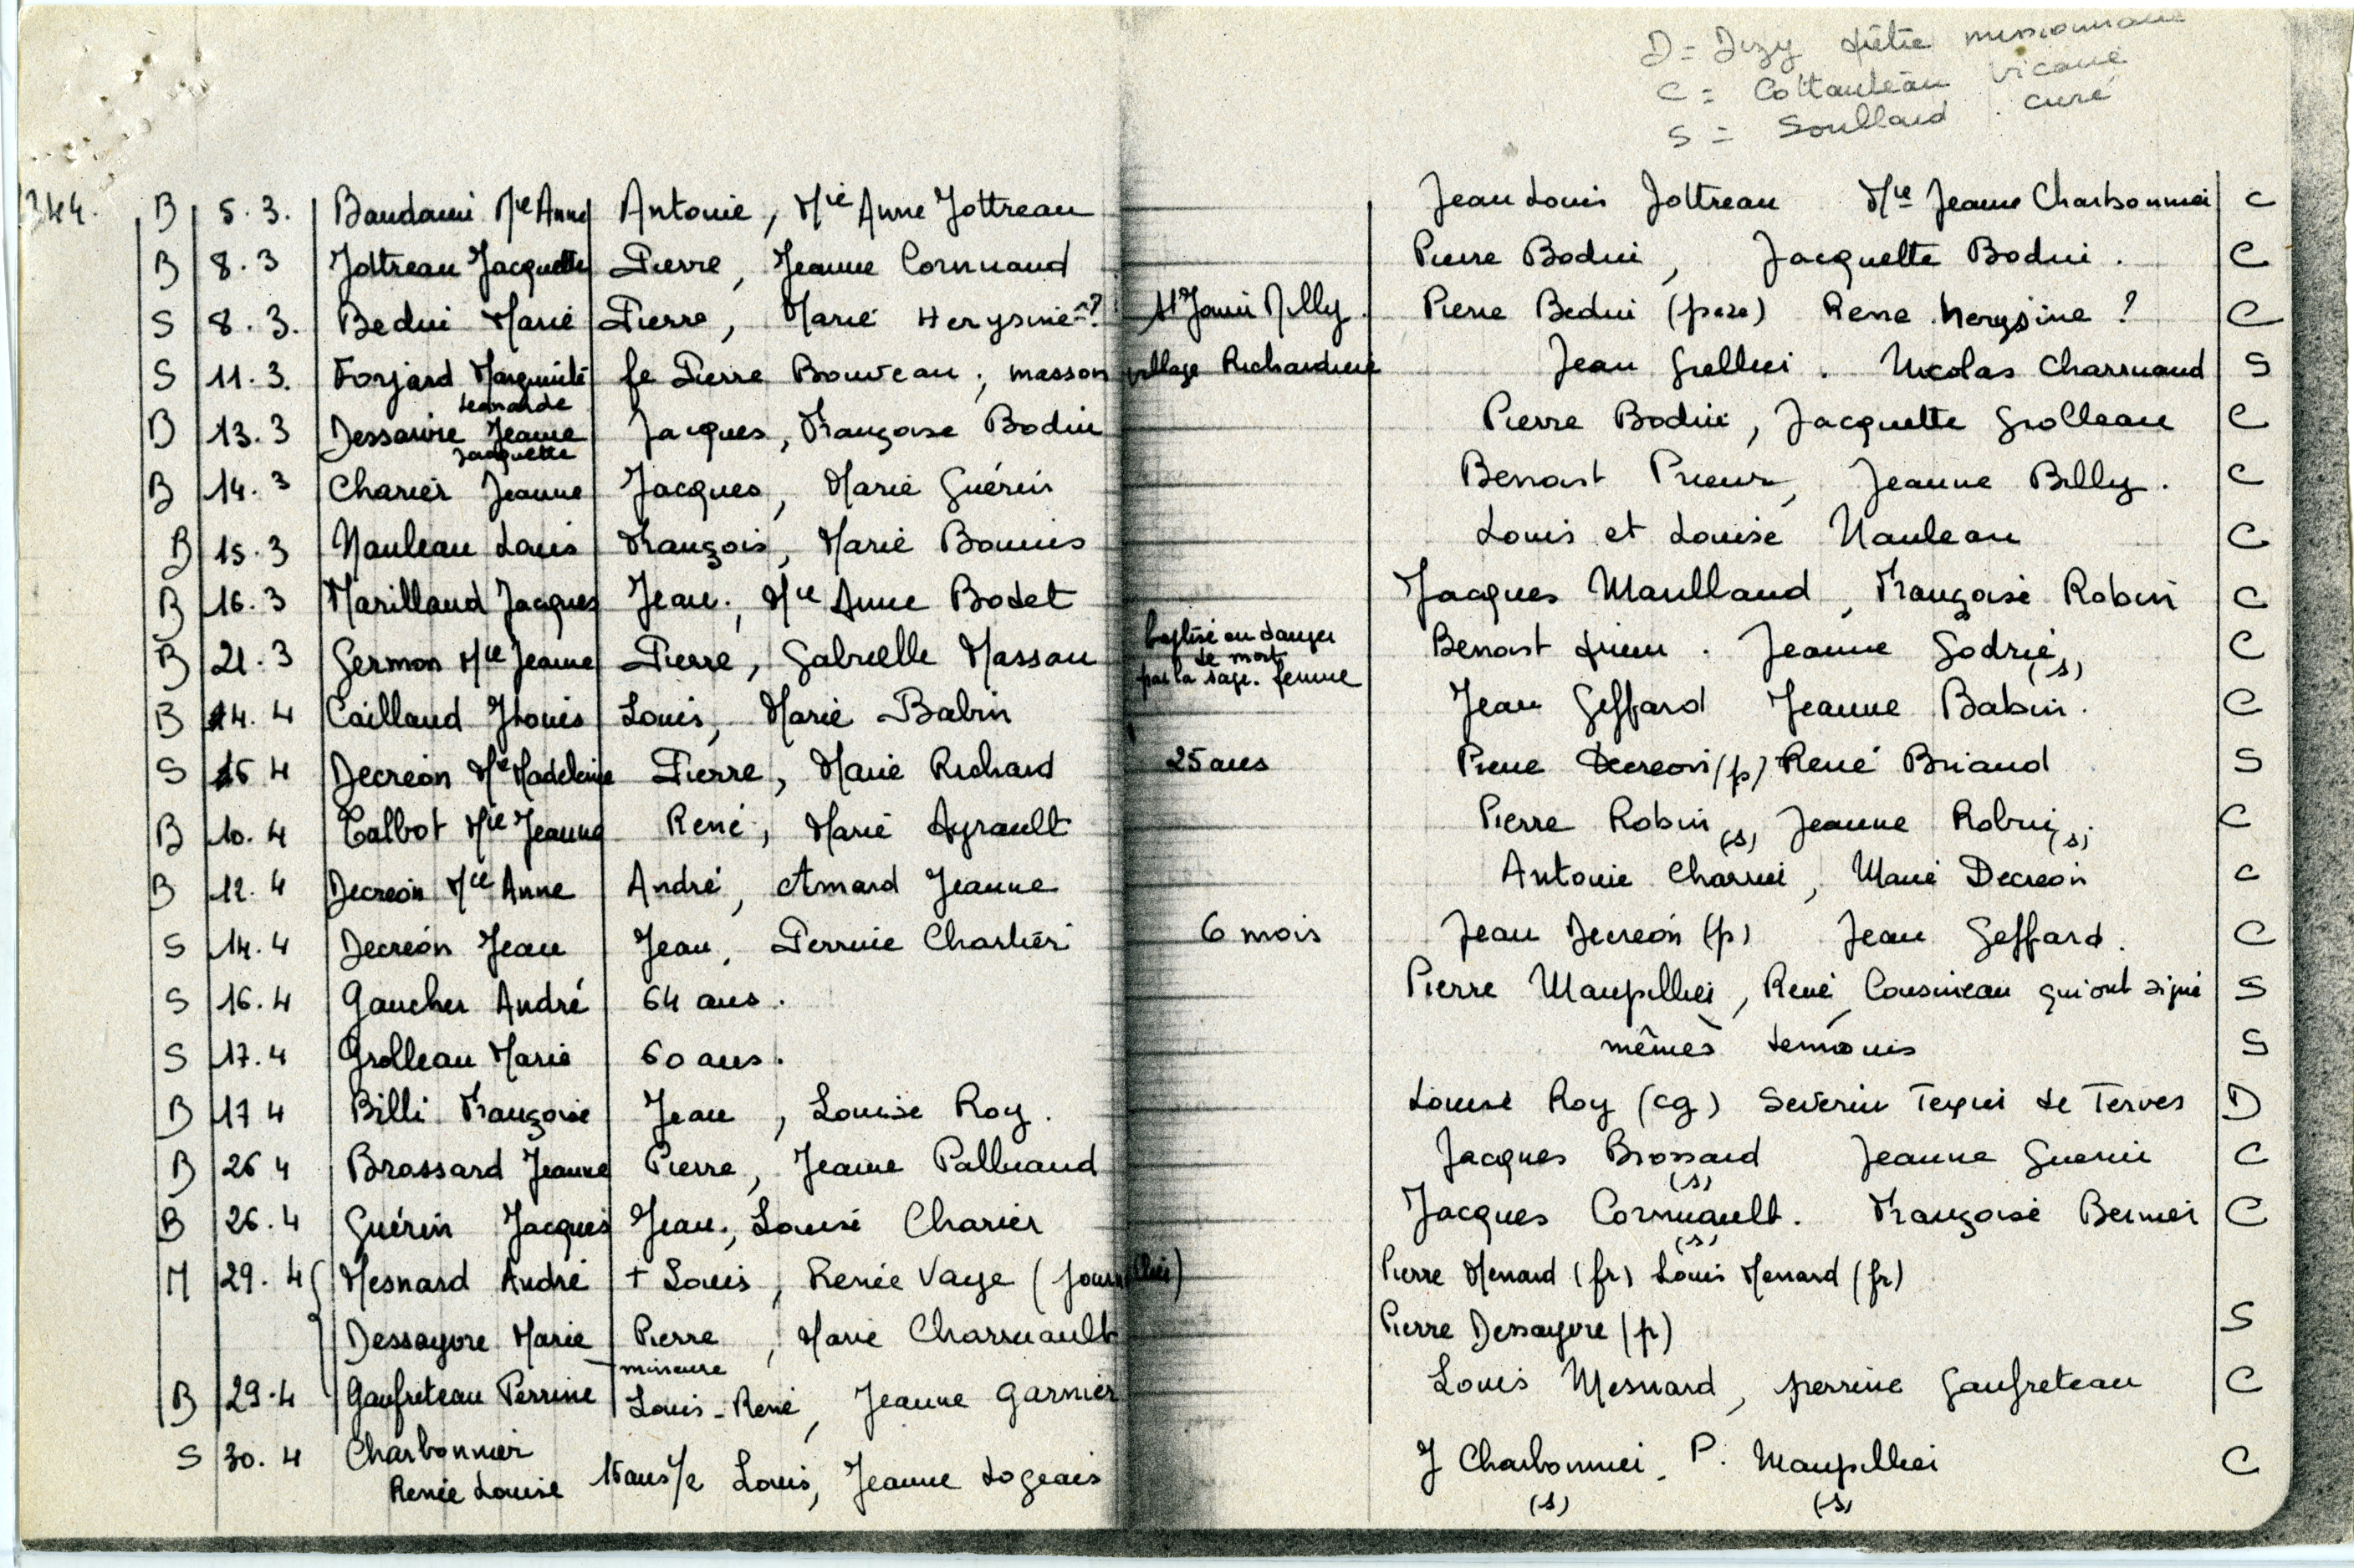 D = Dizy prêtre missionnaire
C = Cottanleau vicaire
S = Soullard curé
344. B 5.3. Baudouin Mie Anne Antoine, Mie Anne Jottreau Jean Louis Jottreau Mie Jeanne Charbonnier C
B 8.3 Jottreau Jacquette Pierre, Jeanne Cornuaud Pierre Bodin, Jacquette Bodin. C
S 8.3. Bedui Marie Pierre, Marie Herysine? St Jouin Milly. Pierre Bedui (père) Rene herysine? C
S 11.3. Forjard Marguerite fe Pierre Bouveau; masson village Richardière Jean Grellier. Nicolas Charruaud S
Léonarde
B 13.3 Dessaivre Jeanne Jacques, Françoise Bodin Pierre Bodin, Jacquette Grolleau C
Jacquette
B 14.3 Charier Jeanne Jacques, Marie Guérin Benoist Prieur, Jeanne Billy. C
B 15.3 Nauleau Louis François, Marie Bonnis Louis et Louise Nauleau C
B 16.3 Marillaud Jacques Jean, Mie Anne Bodet Jacques Marillaud, Françoise Robin C
B 21.3 Germon Mie Jeanne Pierre, Gabrielle Massau baptisé en danger de mort par la sage-femme Benoist prieur. Jeanne Godrie (s) C
B 4.4 Caillaud JLouis Louis, Marie Babin Jean Geffard Jeanne Babin. C
S 5 4 Decreon Mie Madeleine Pierre, Marie Richard 25 ans Pierre Decreon (p) René Briand S
B 10.4 Talbot Mie Jeanne René, Marie Ayrault Pierre Robin (s) Jeanne Robin (s) C
B 12.4 Decreon Mie Anne André, Amard Jeanne Antoine Charrier, Marie Decreon C
S 14.4 Decreon Jean Jean, Perrine Charlier 6 mois Jean Decreon (p) Jean Geffard. C
S 16.4 Gaucher André 64 ans. Pierre Maupillier, René Cousineau qui ont signé S
S 17.4 Grolleau Marie 60 ans. mêmes témoins S
B 17 4 Billi Françoise Jean, Louise Roy. Louise Roy (cg) Severin Texier de Terves D
B 26 4 Brossard Jeanne Pierre, Jeanne Palluaud Jacques Brossard (s) Jeanne Guerin C
B 26.4 Guérin Jacques Jean, Louise Charier Jacques Cornuault. (s) Françoise Bernier C
M 29.4 Mesnard André + Louis, Renée Vaye (journallier) Pierre Menard (fr) Louis Menard (fr)
Dessayvre Marie Pierre, Marie Charruault Pierre Dessayvre (p) S
mineure
B 29.4 Gaufreteau Perrine Louis-René, Jeanne Garnier Louis Mesnard, perrine Gaufreteau C
S 30.4 Charbonnier Renée Louise 15 ans /e Louis, Jeanne Logeais J Charbonnier (s) P. Maupillier (s) C